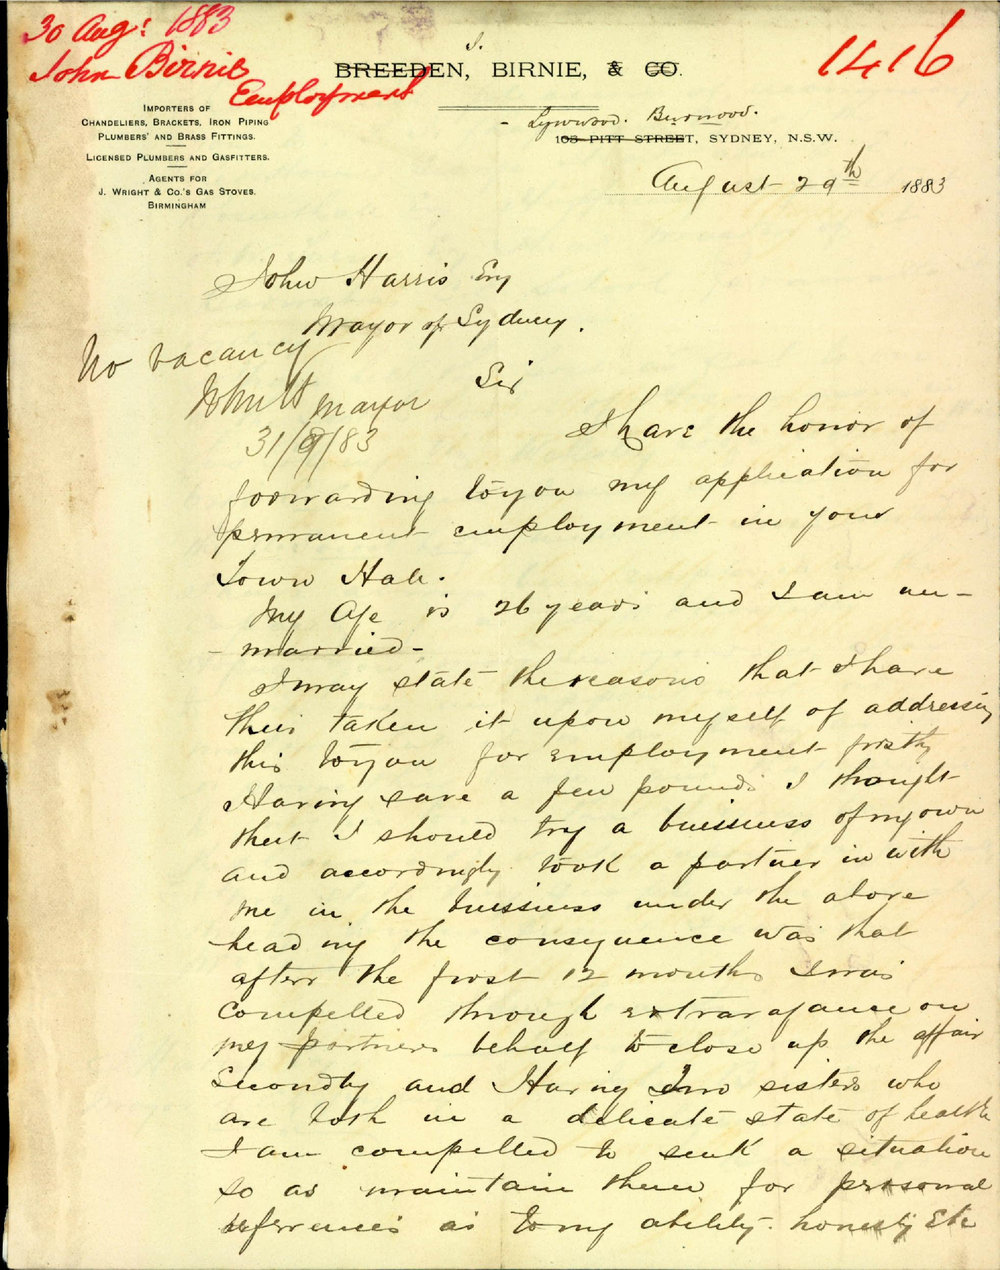 30 Aug: 1883
John Birnie
Employment
1416
J.
BREEDEN, BIRNIE, & CO.
IMPORTERS OF
CHANDELIERS, BRACKETS, IRON PIPING
PLUMBERS' AND BRASS FITTINGS.
LICENSED PLUMBERS AND GASFITTERS.
AGENTS FOR
J. WRIGHT & CO.'S GAS STOVES.
BIRMINGHAM
Lynwood. Burwood.
103 PITT STREET, SYDNEY, N.S.W.
August 29th 1883
John Harris Esq
Mayor of Sydney.
No vacancy
Mayor
31/8/83
Sir
I have the honor of
forwarding to you my application for
permanent employment in your
Town Hall.
My Age is 26 years and I am un-
- married -
I may state the reasons that I have
thus taken it upon myself of addressing
this to you for employment firstly
Having save a few pounds I thought
that I should try a buissiness of my own
and accordingly took a partner in with
me in the buissiness under the above
heading the consequence was that
after the first 12 months I was
compelled through extravagance on
my partners behalf to close up the affair
Secondly and Having Two sisters who
are both in a delicate state of health
I am compelled to seek a situation
so as maintain them for personal
references as to my ability honesty Etc